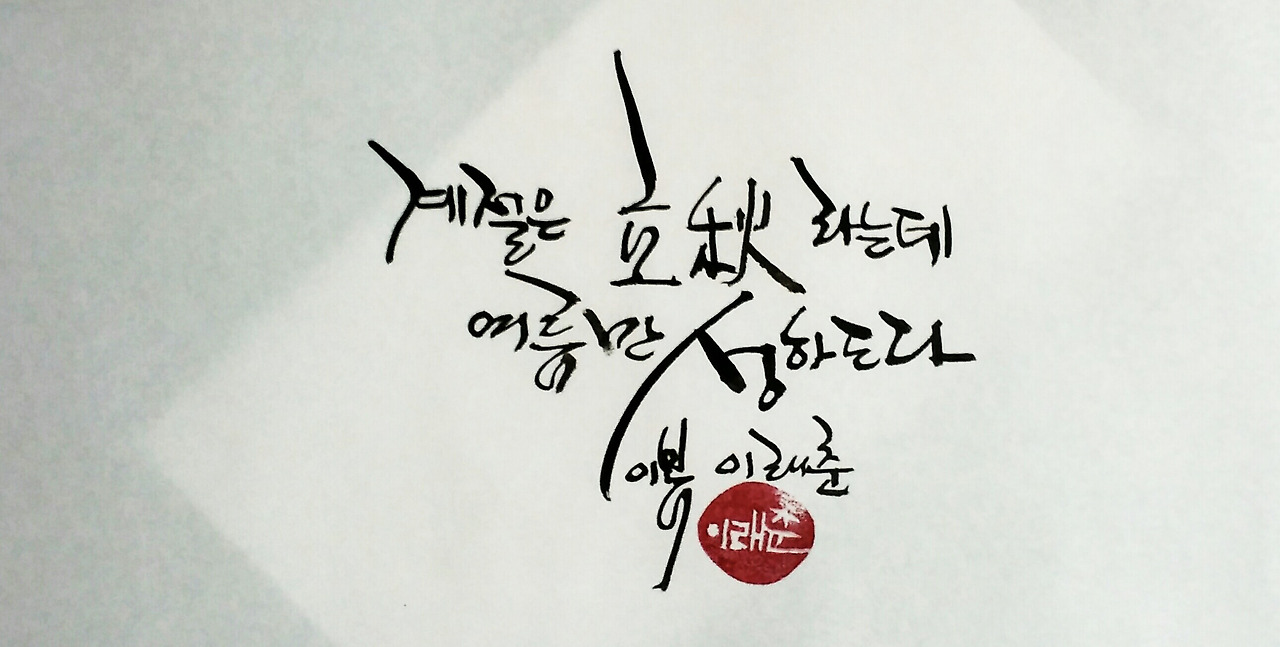 계절은 立秋라는데
여름만 성하도다
이래춘
이래춘